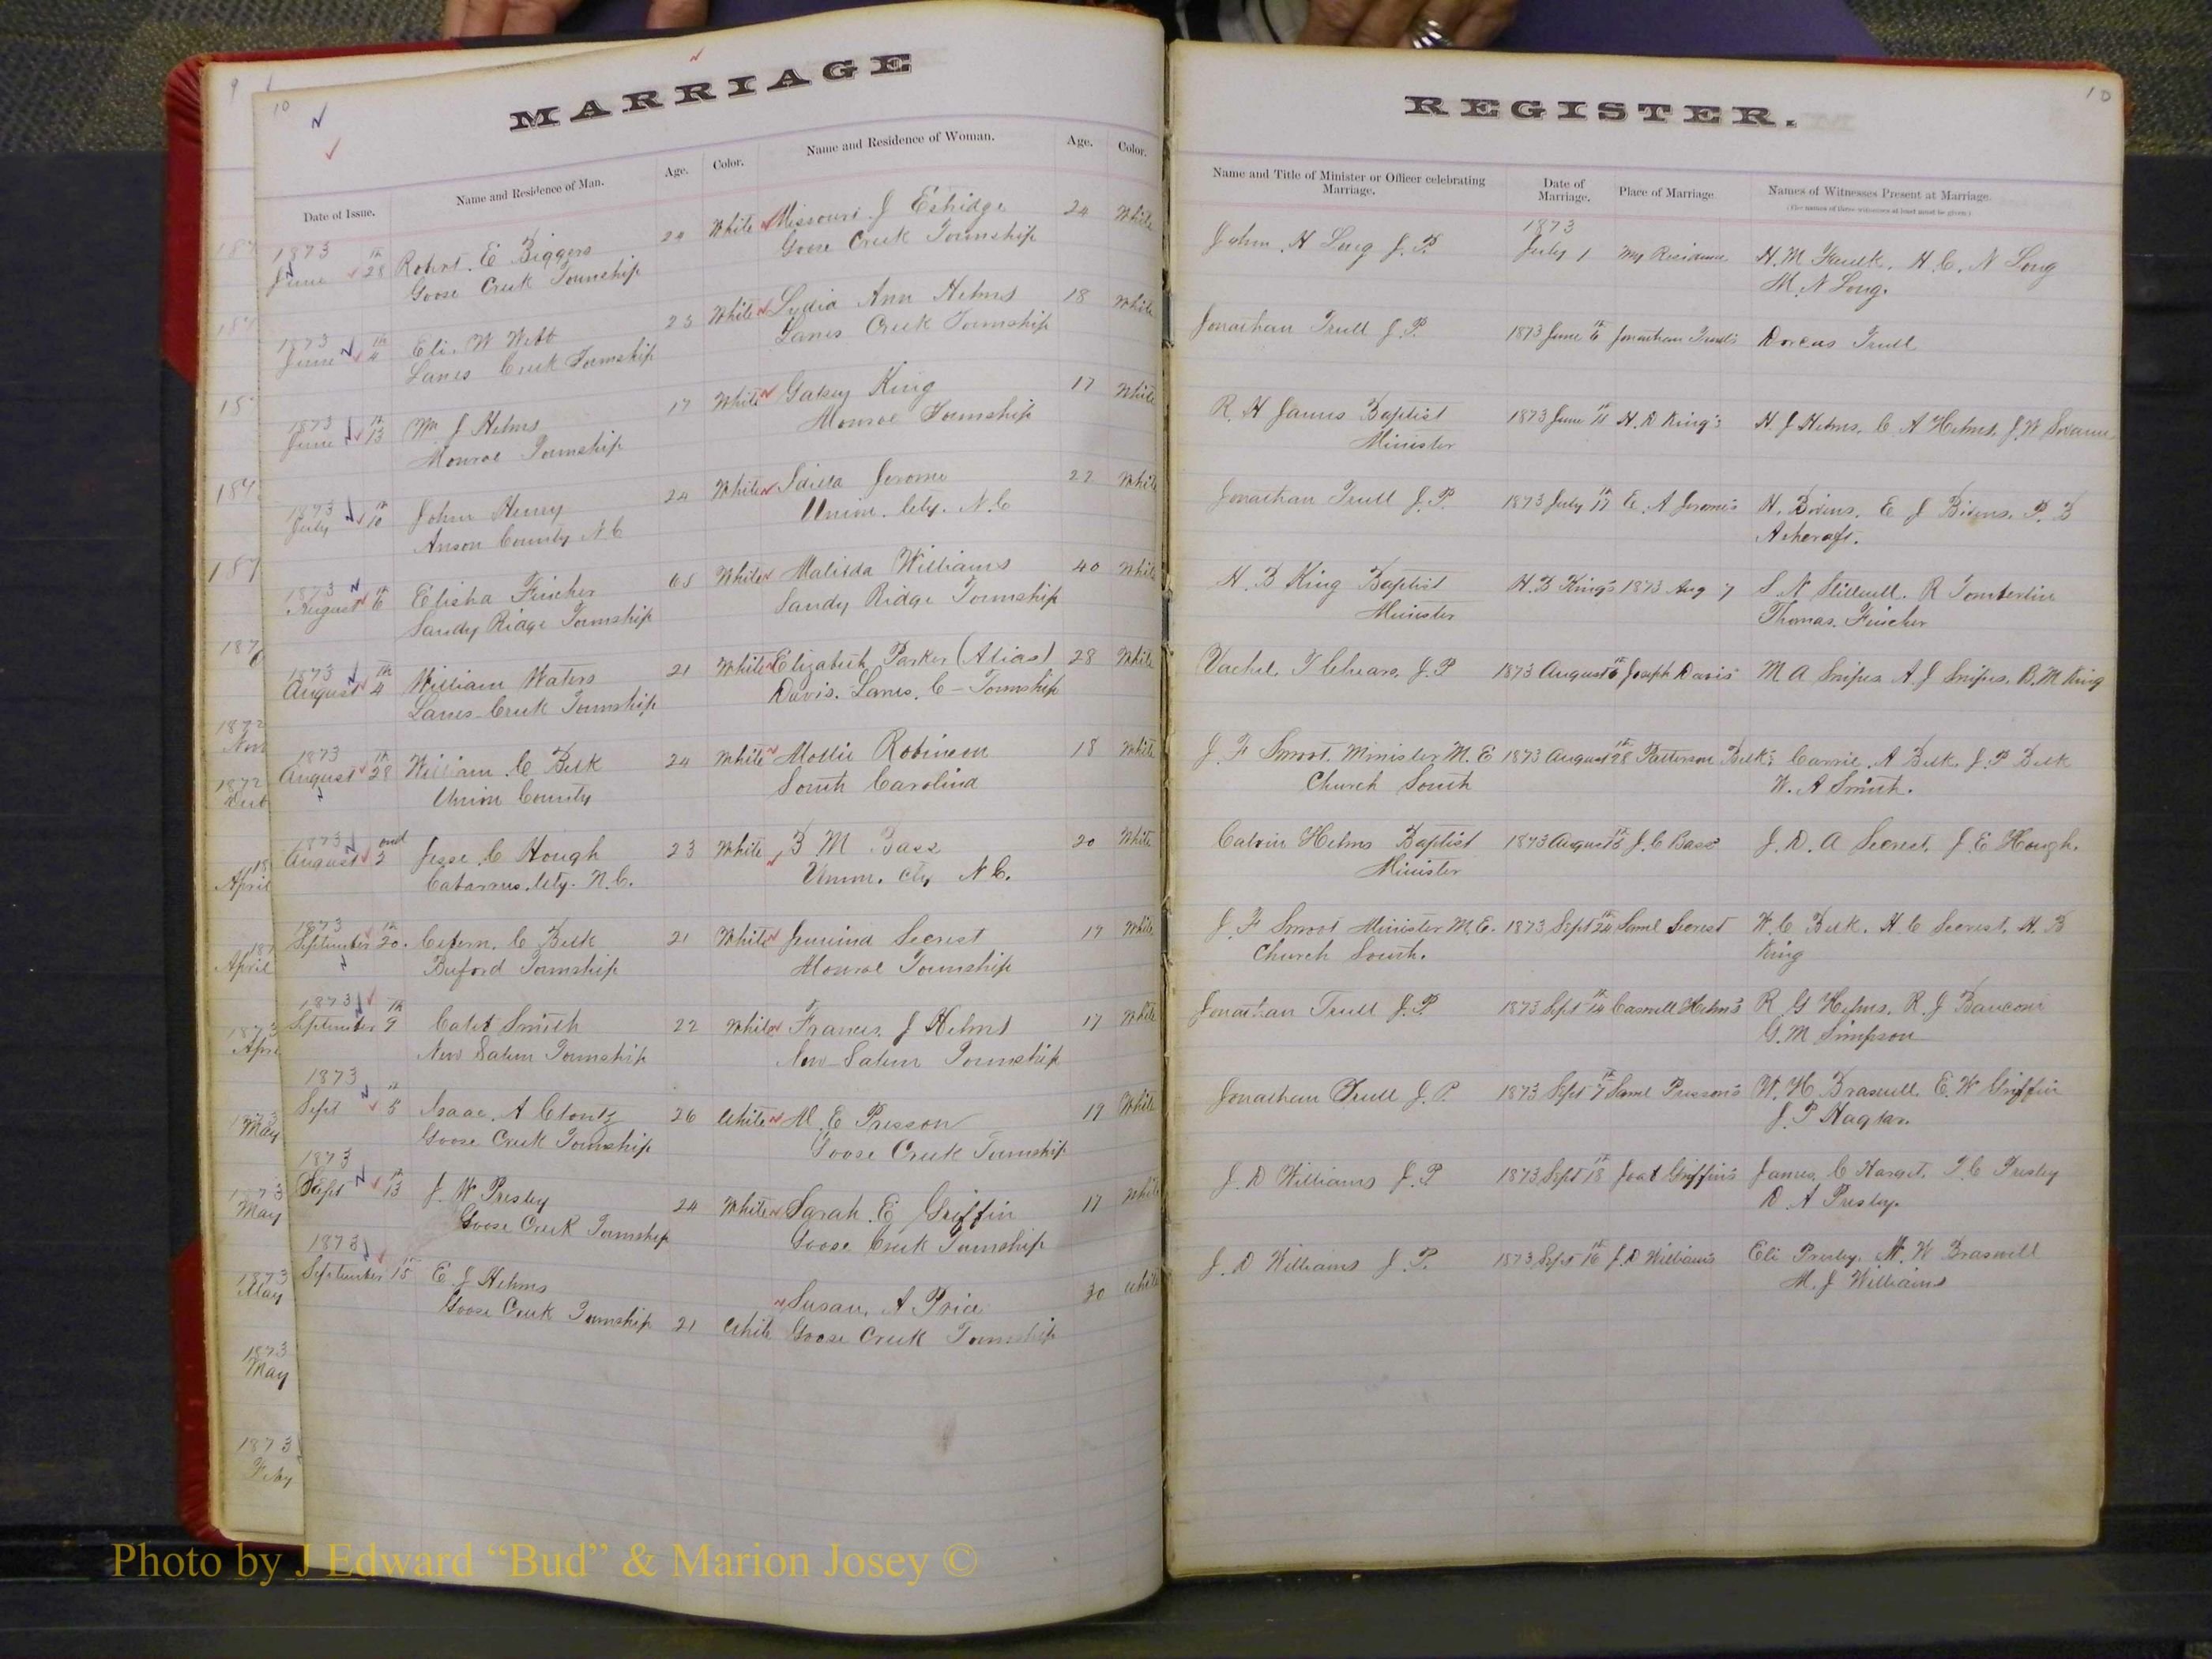 MARRIAGE
REGISTER.
10
10
9
Date of Issue.
Name and Residence of Man.
Age.
Color.
Name and Residence of Woman.
Age.
Color.
Name and Title of Minister or Officer celebrating Marriage.
Date of Marriage.
Place of Marriage.
Names of Witnesses Present at Marriage.
(The names of three witnesses at least must be given.)
1873 1873
June 28th Robert. E Biggers 24 White Missouri. J Eshidge 24 White John. H Long J. P. July 1 My Residence H. M. Faulk. H. C. N Long
Goose Creek Township Goose Creek Township M. N Long.
1873
June 4th Eli. W Webb 23 White Lydia Ann Helms 18 White Jonathan Trull J. P. 1873 June 6th Jonathan Trull's Dorcas Trull
Lanes Creek Township Lanes Creek Township
1873
June 13th Wm J Helms 17 White Gatsey King 17 White R. H James Baptist 1873 June H. D King's H. J Helms. C. A Helms, J. W
Monroe Township Monroe Township Minister
1873
July 10th John Henry 24 White Jerome 22 White Jonathan Trull J. P. 1873 July 17th E. A Jerome's H. Bivens. E J Bivens. P. B
Anson County N. C Union. Cty. N. C Ashcraft.
1873
August 6th Elisha Fincher 65 White Malisda Williams 40 White H. B King Baptist H. B King's 1873 Aug 7 S. N Stillwell. R Tomberlin
Sandy Ridge Township Sandy Ridge Township Minister Thomas. Fincher
1873
August 4th William Waters 21 White Elizabeth Parker (Alias) 28 White Vachel. T J. P 1873 August 6th Joseph Davis' M A Snipes A. J Snipes. B. M King
Lanes Creek Township Davis. Lanes. C - Township
1873
August 28th William C Belk 24 White Mollie Robinson 18 White J. F Smoot. Minister M. E 1873 August 28th Patterson Belk's Carrie. A Belk. J. P Belk
Union County South Carolina Church South W. A Smith.
1873
August 2ond Jesse C Hough 23 White B M Bass 20 White Calvin Helms Baptist 1873 August J. C Bass' J. D. A Secrest. J. E Hough.
Cabarrus. Cty. N. C. Union. Cty N C. Minister
1873
September 20th. C Belk 21 White Secrest 19 White J. F Smoot Minister M. E. 1873 Sept 24th Saml Secrest W. C Belk. H C Secrest. H. B
Buford Township Monroe Township Church South. King
1873
September 9th Caleb Smith 22 White Frances. J Helms 17 White Jonathan Trull J. P. 1873 Sept 14th Caswell Helms's R G Helms. R. J Baucom
New Salem Township New Salem Township G. M Simpson
1873
Sept 5 Isaac. A Clontz 26 White M. E Presson 19 White Jonathan Trull J. P 1873 Sept 7th Saml Presson's W. H. Braswell. E. W Griffin
Goose Creek Township Goose Creek Township J. P Haglar.
1873
Sept 13th J. W Presley 24 White Sarah. E Griffin 17 White J. D Williams J. P 1873 Sept 18th Griffin's James. C Harget. T. C Presley
Goose Creek Township Goose Creek Township D. A Presley.
1873
September 15th E. J Helms Susan. A Price 30 White J. D Williams J. P. 1873 Sept 16th J. D Williams Eli Presley. W Braswell
Goose Creek Township 21 White Goose Creek Township M. J Williams
187
187
1872
Nov
1872
April
April
1873
May
May
1873
May
1873
May
1873
Feby
Photo by J Edward “Bud” & Marion Josey ©